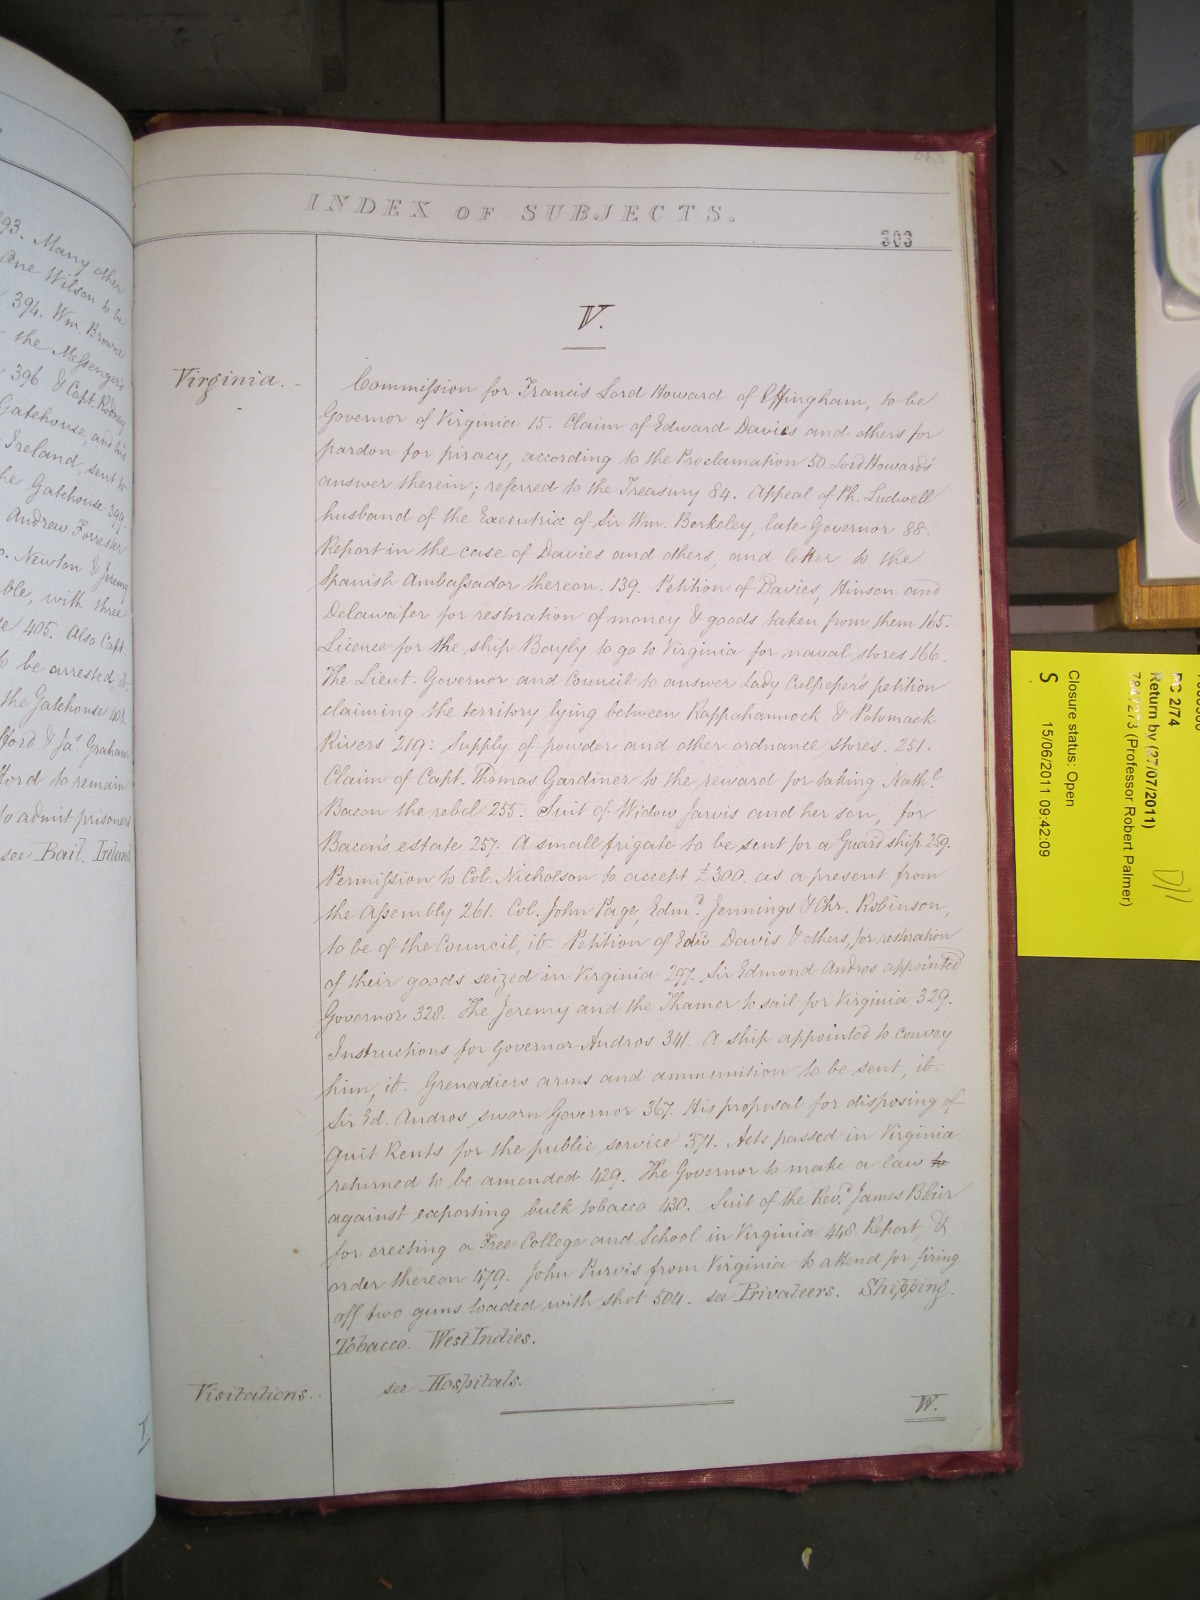 393. Many other
One Wilson to be
394. Wm. Browne
the Messengers
396 & Capt. Rodney
Gatehouse, and his
Ireland, sent to
the Gatehouse 399.
Andrew Forrester
Newton & Jeremy
ble, with three
405. Also Capt.
to be arrested, ib.
the Gatehouse 408.
fford & Jas. Graham
ford to remain
to admit prisoners
see Bail. Ireland
INDEX OF SUBJECTS.
303
V.
Virginia.
Commission for Francis Lord Howard of Effingham, to be
Governor of Virginia 15. Claim of Edward Davies and others for
pardon for piracy, according to the Proclamation 50. Lord Howard's
answer therein; referred to the Treasury 84. Appeal of Ph. Ludwell
husband of the Executrix of Sir Wm. Berkeley, late Governor 88.
Report in the case of Davies and others, and letter to the
Spanish Ambassador thereon. 139. Petition of Davies, Hinson and
Delawafer for restoration of money & goods taken from them 165.
Licence for the ship Bayly to go to Virginia for naval stores 166.
The Lieut. Governor and Council to answer Lady Culpeper's petition
claiming the territory lying between Rappahannock & Potomack
Rivers 219: Supply of powder and other ordnance stores. 251.
Claim of Capt. Thomas Gardiner to the reward for taking Nathl.
Bacon the rebel 255. Suit of Widow Jarvis and her son, for
Bacon's estate 257. A small frigate to be sent for a Guard ship 259.
Permission to Col. Nicholson to accept £300. as a present from
the Assembly 261. Col. John Page, Edmd. Jennings & Chr. Robinson,
to be of the Council, ib. Petition of Edw. Davis & others, for restoration
of their goods seized in Virginia 297. Sir Edmond Andros appointed
Governor 328. The Jeremy and the Thamer to sail for Virginia 329.
Instructions for Governor Andros 341. A ship appointed to convey
him, ib. Grenadiers arms and ammunition to be sent, ib.
Sir Ed. Andros sworn Governor 367. His proposal for disposing of
Quit Rents for the public service 371. Acts passed in Virginia
returned to be amended 429. The Governor to make a law to
against exporting bulk tobacco 430. Suit of the Revd. James Blair
for erecting a Free College and School in Virginia 448. Report, &
order thereon 479. John Purvis from Virginia to attend for firing
off two guns loaded with shot 504. see Privateers. Shipping.
Tobacco. West Indies.
Visitations..
see Hospitals.
W.
PC 2/74
Return by (27/07/2011)
(Professor Robert Palmer)
Closure status: Open
S 15/06/2011 09:42:09